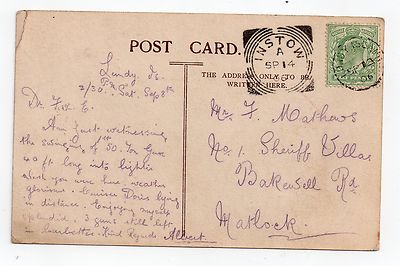 POST CARD.
THE ADDRESS ONLY TO BE
WRITTEN HERE.
INSTOW
A
SP 14
Lundy Is.
2/30. P.M. Sat. Sep 8th
Dr. F. & E.
Am just witnessing
the swinging of 50. Ton Guns
40 ft long into lighter
wish you were here, weather
glorious. Cruiser Doris lying
in distance. Enjoying myself
splendid. 3 guns still left
in barbettes. Kind Regards Albert.
Mr F. Mathews
No. 1. Sheriff Villas
Bakewell Rd
Matlock.